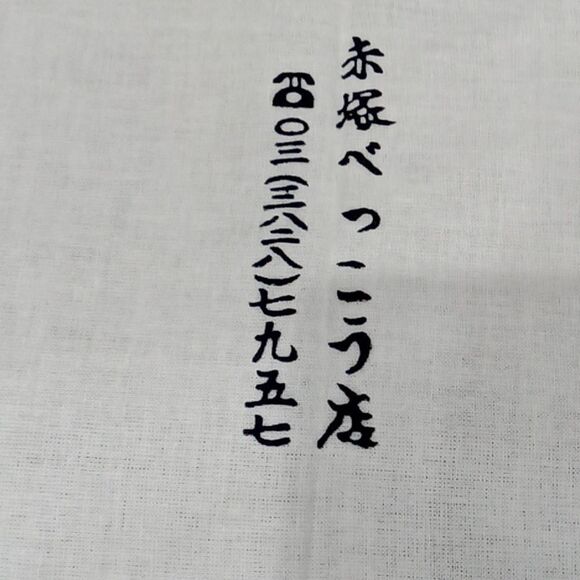 赤塚べっこう店
☎〇三(三八二八)七九五七